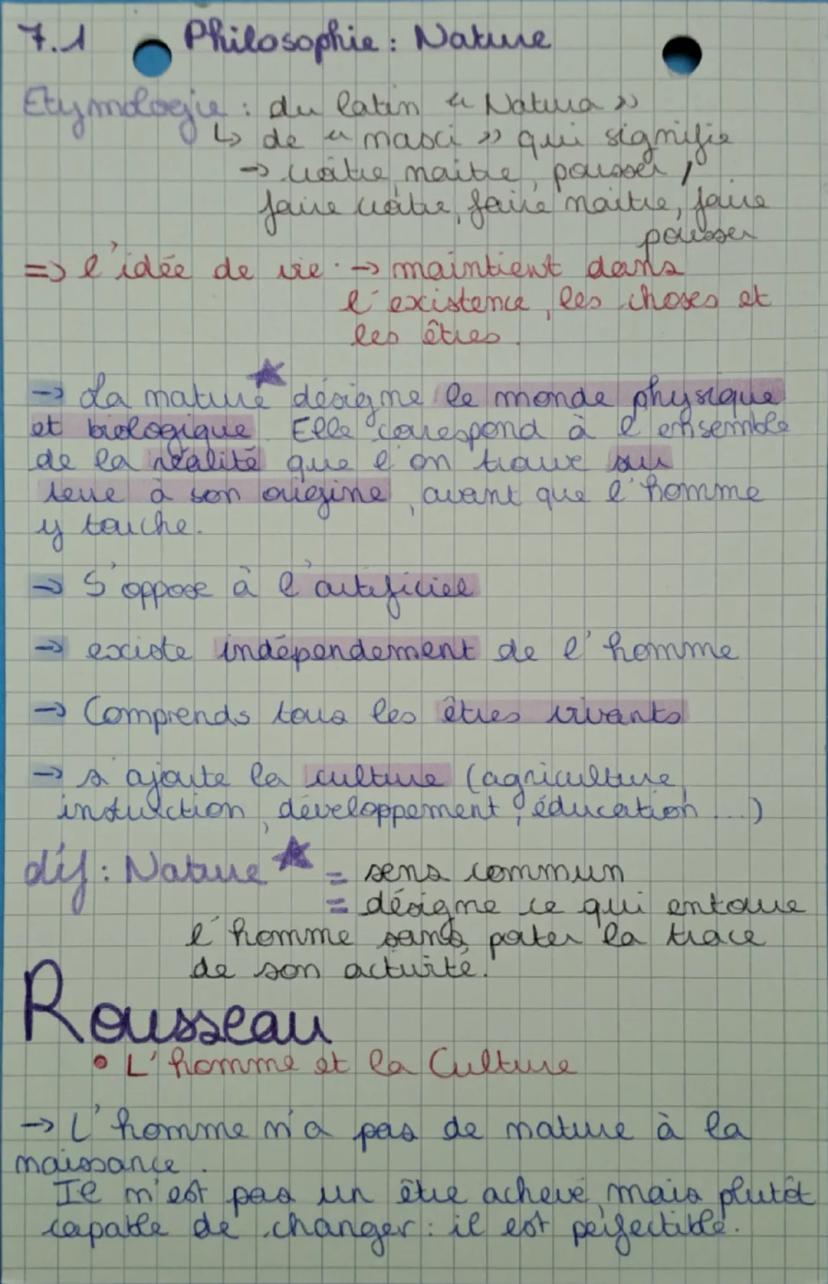 7.1 Philosophie : Nature
Etymologie : du latin « Natura »
↳ de « nasci » qui signifie
→ croître naître, pousser,
faire croître, faire naître, faire
pousser
=> l'idée de vie. → maintient dans
l'existence, les choses et
les êtres.
→ La nature* désigne le monde physique
et biologique. Elle correspond à l'ensemble
de la réalité que l'on trouve sur
terre à son origine, avant que l'homme
y touche.
→ S'oppose à l'artificiel
→ existe indépendement de l'homme
→ Comprends tous les êtres vivants
→ s'ajoute la culture (agriculture,
instruction, développement, éducation ...)
déf : Nature* = sens commun
= désigne ce qui entoure
l'homme sans porter la trace
de son activité.
Rousseau
• L'homme et la Culture
→ L'homme n'a pas de nature à la
naissance.
Il n'est pas un être achevé, mais plutôt
capable de changer : il est perfectible.